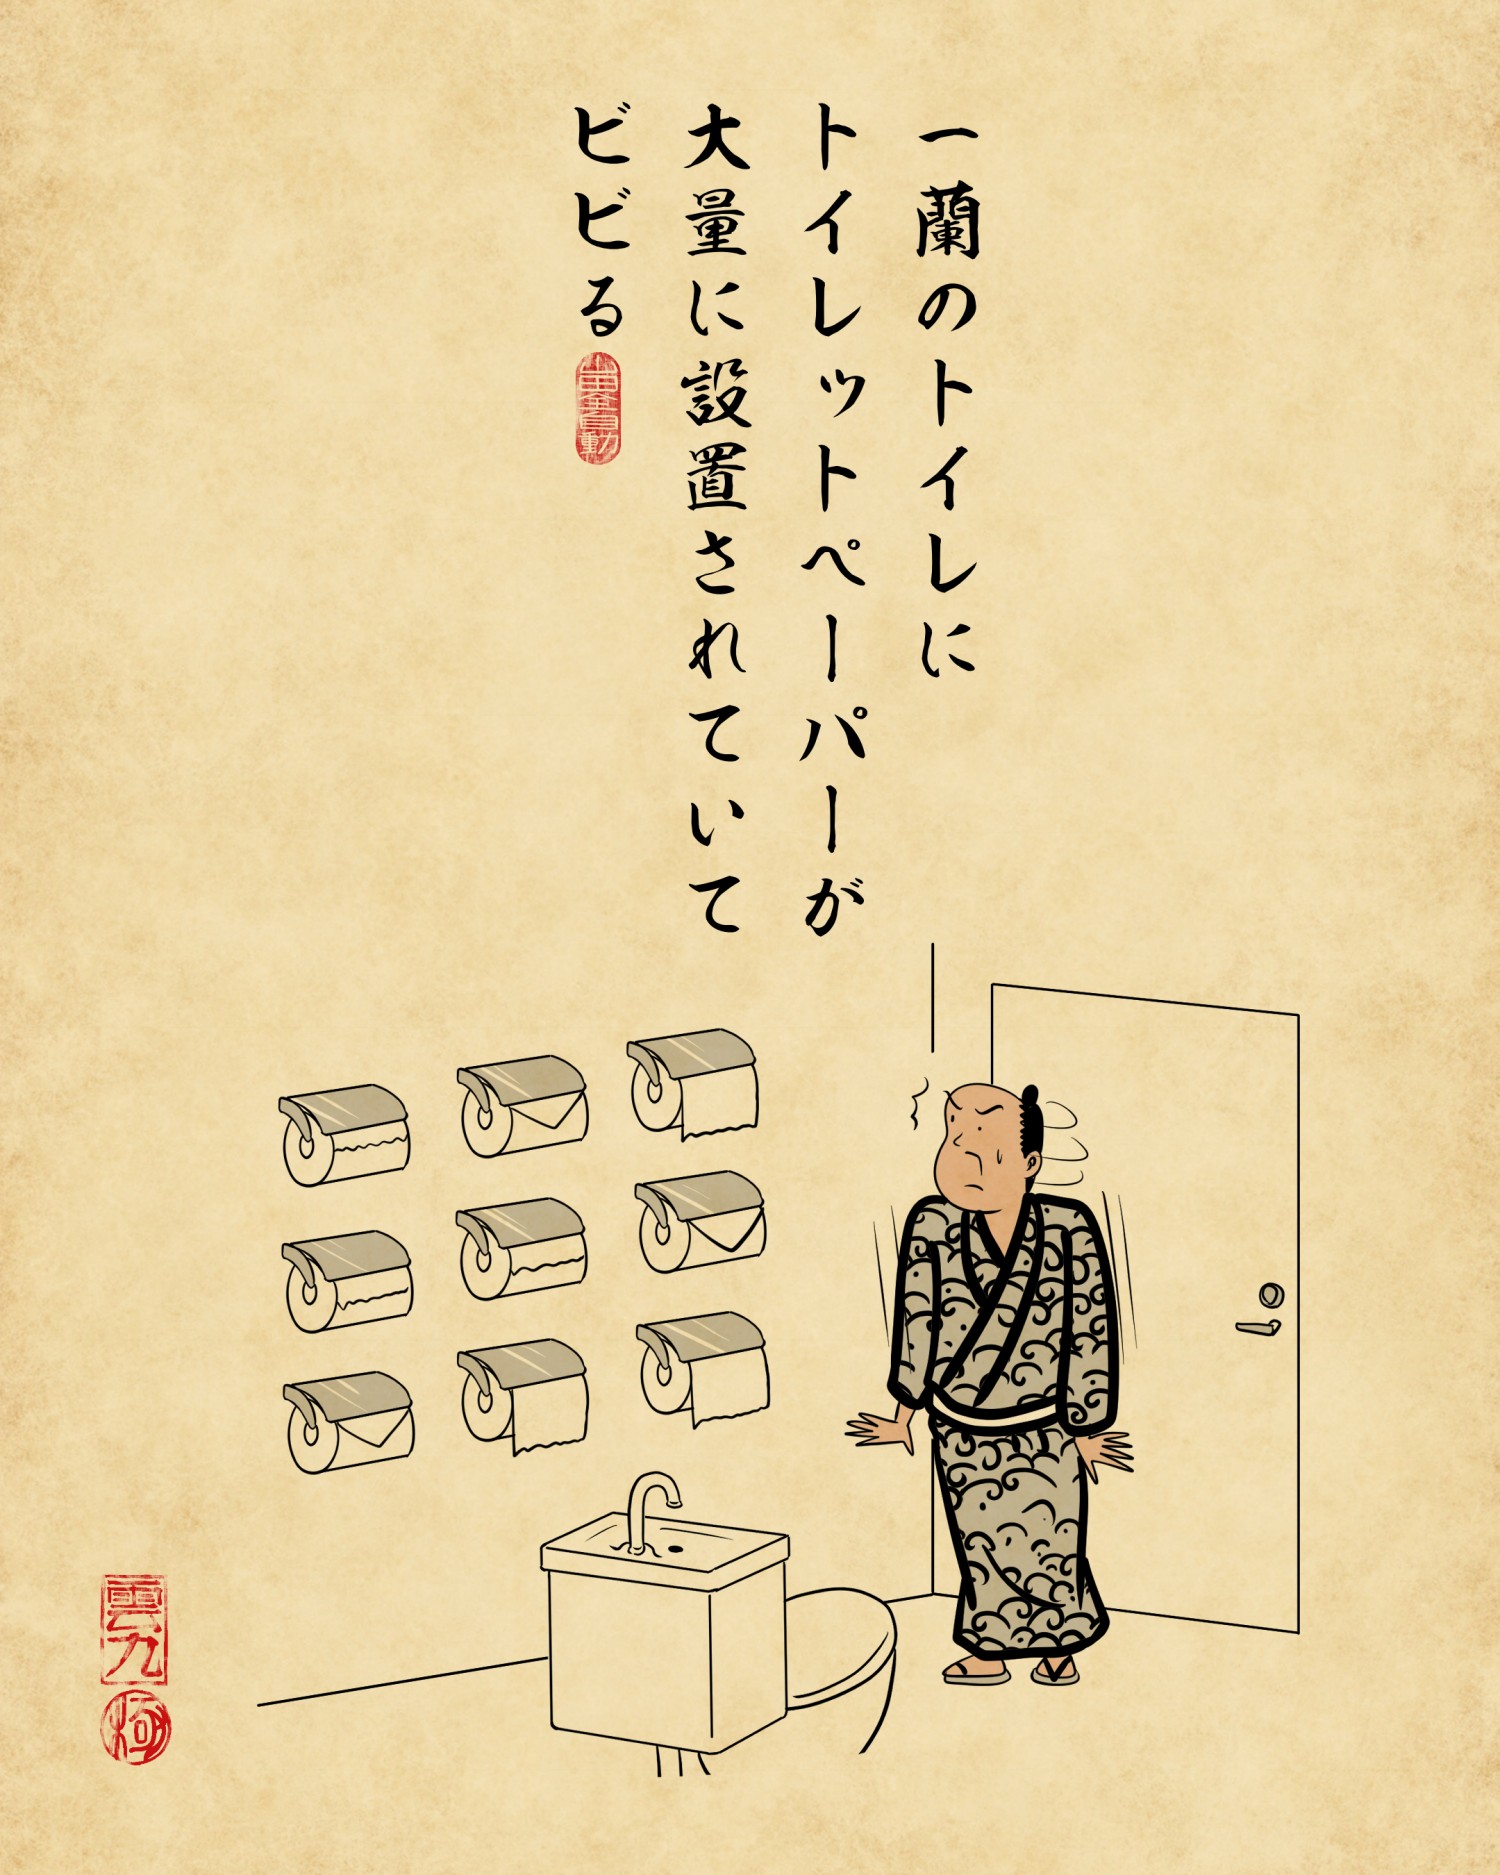 一蘭のトイレに
トイレットペーパーが
大量に設置されていて
ビビる
山田全自動
雲九
極